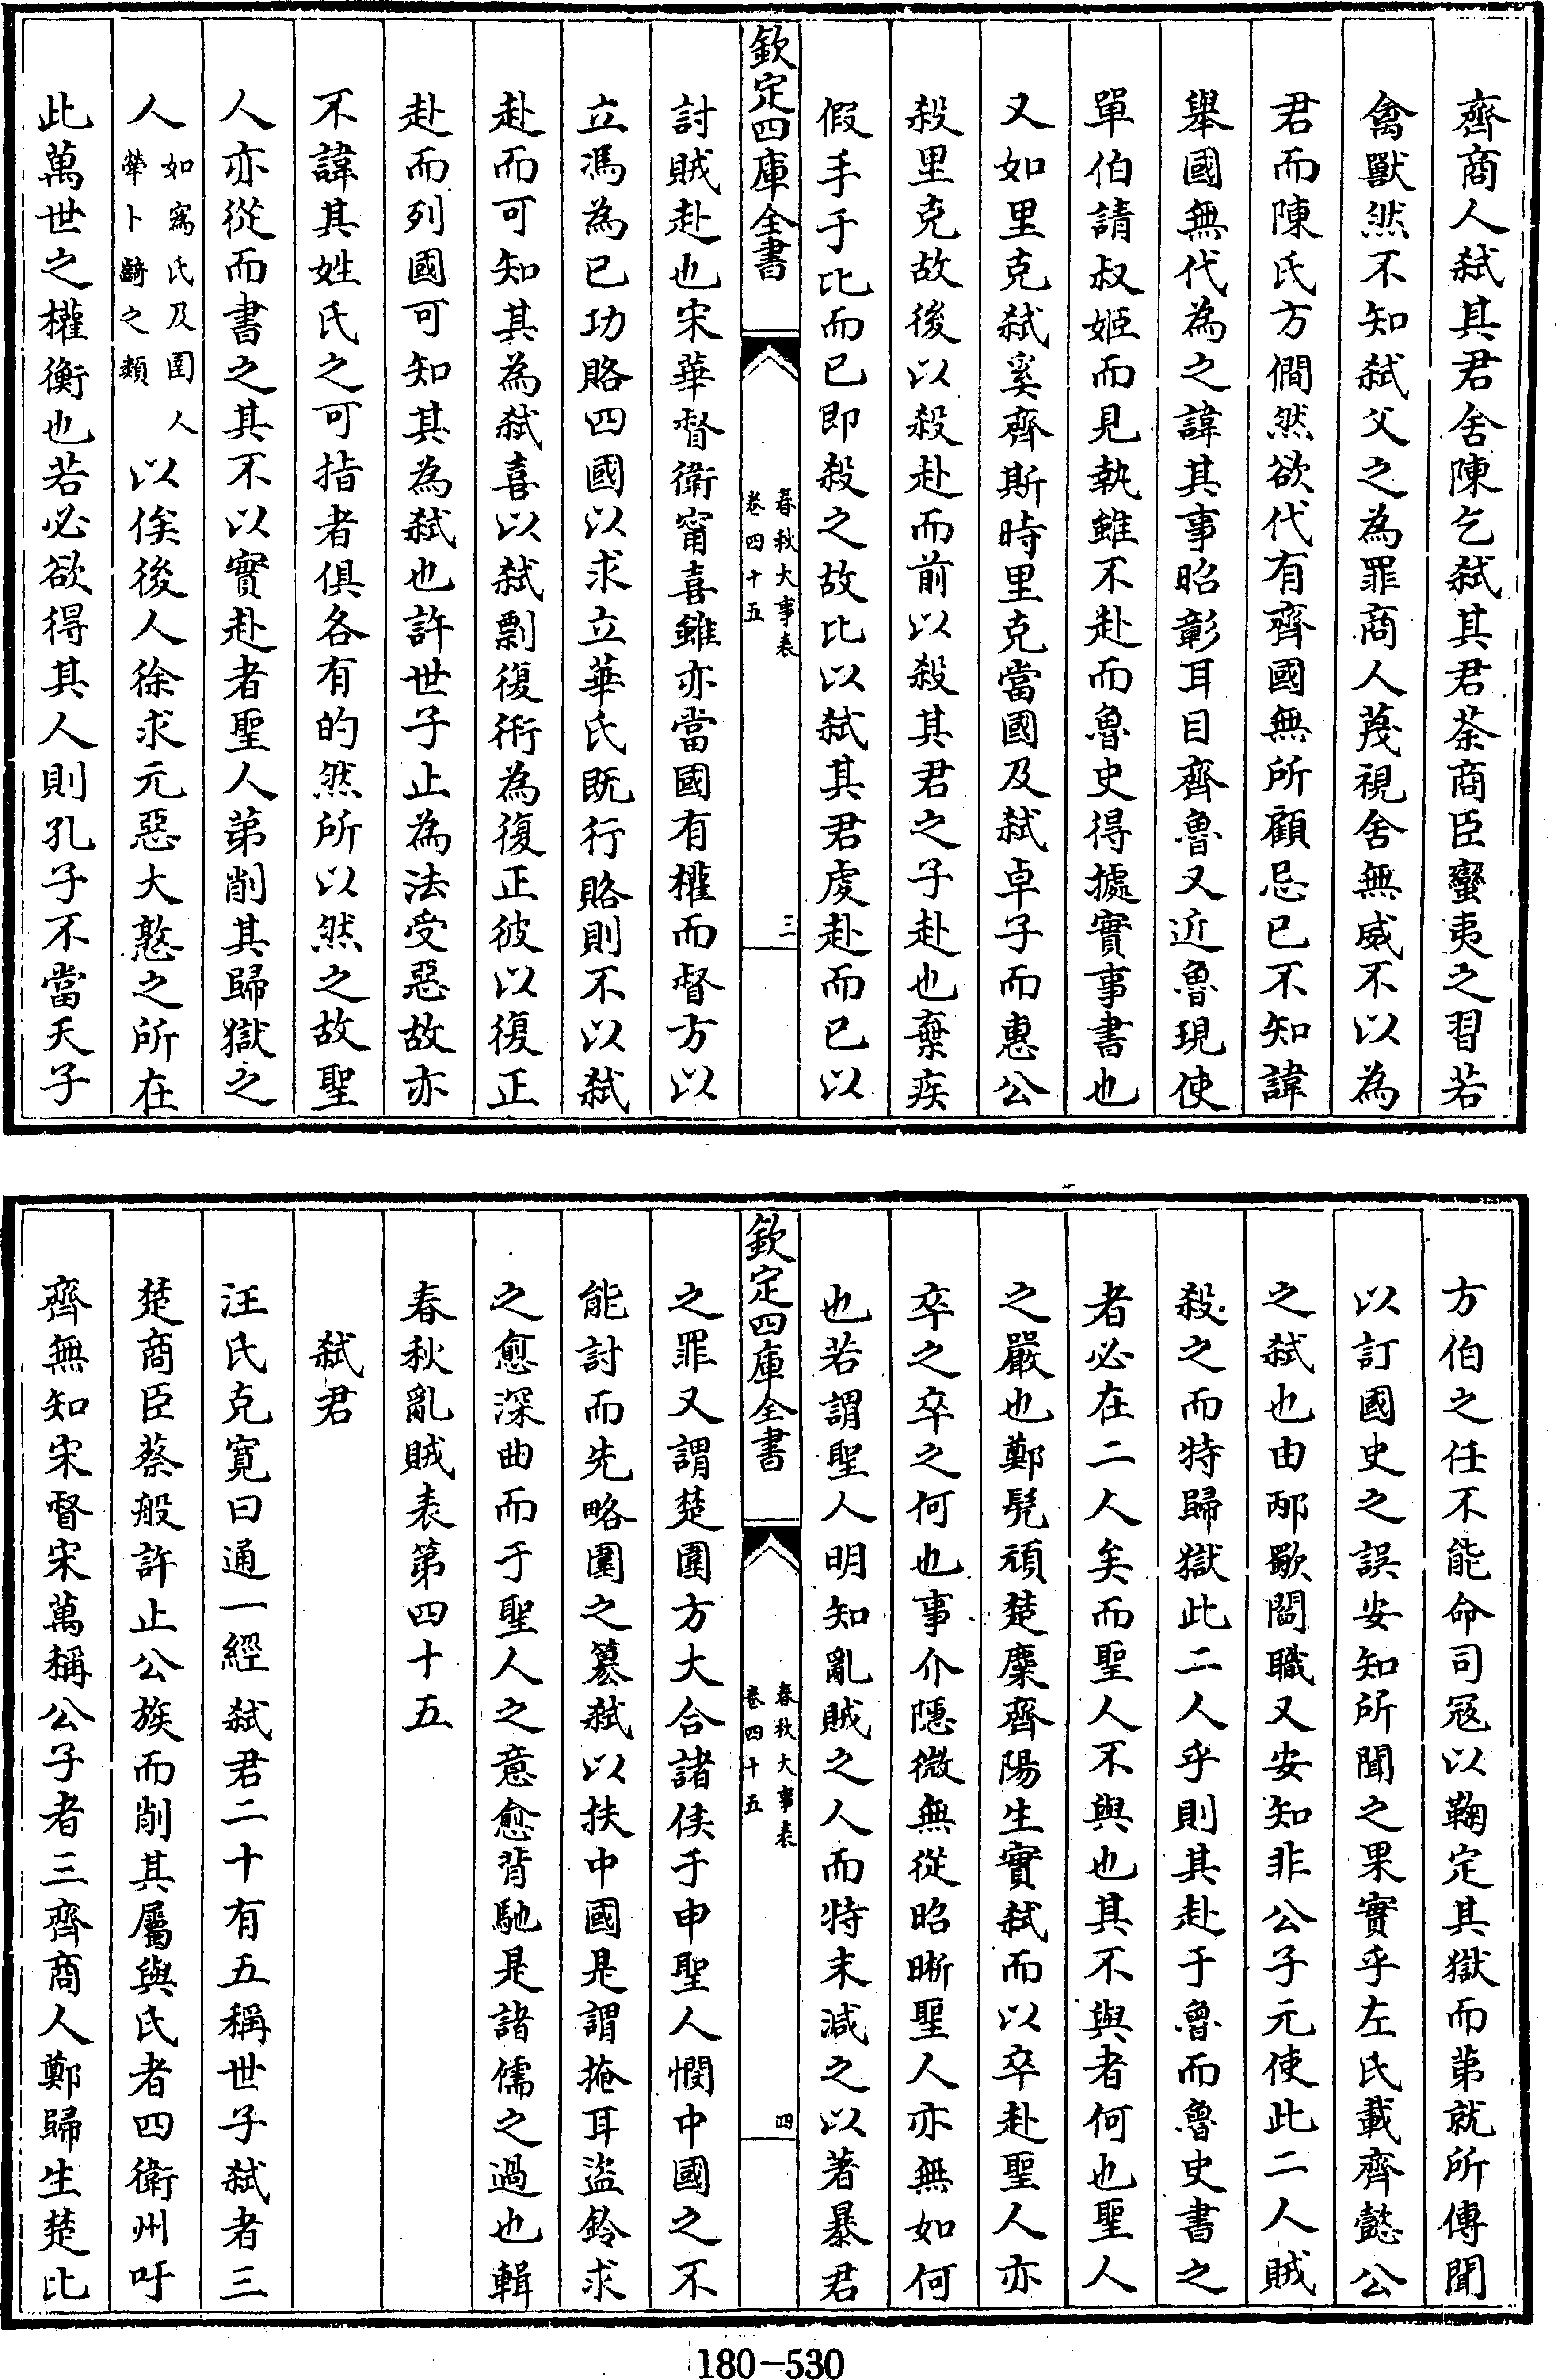 齊商人弑其君舍陳乞弑其君荼商臣蠻夷之習若
禽獸然不知弑父之為罪商人蔑視舍無威不以為
君而陳氏方僩然欲代有齊國無所顧忌已不知諱
舉國無代為之諱其事昭彰耳目齊魯又近魯現使
單伯請叔姬而見執雖不赴而魯史得據實事書也
又如里克弑奚齊斯時里克當國及弑卓子而惠公
殺里克故後以殺赴而前以殺其君之子赴也棄疾
假手于比而已即殺之故比以弑其君虔赴而已以
欽定四庫全書
春秋大事表
卷四十五
三
討賊赴也宋華督衛甯喜雖亦當國有權而督方以
立馮為已功賂四國以求立華氏既行賂則不以弑
赴而可知其為弑喜以弑剽復衎為復正彼以復正
赴而列國可知其為弑也許世子止為法受惡故亦
不諱其姓氏之可指者俱各有的然所以然之故聖
人亦從而書之其不以實赴者聖人第削其歸獄之
人如寫氏及圉人
犖卜齮之類以俟後人徐求元惡大憝之所在
此萬世之權衡也若必欲得其人則孔子不當天子
方伯之任不能命司寇以鞠定其獄而第就所傳聞
以訂國史之誤安知所聞之果實乎左氏載齊懿公
之弑也由邴歜閻職又安知非公子元使此二人賊
殺之而特歸獄此二人乎則其赴于魯而魯史書之
者必在二人矣而聖人不與也其不與者何也聖人
之嚴也鄭髡頑楚麇齊陽生實弑而以卒赴聖人亦
卒之卒之何也事介隱微無從昭晰聖人亦無如何
也若謂聖人明知亂賊之人而特末減之以著暴君
欽定四庫全書
春秋大事表
卷四十五
四
之罪又謂楚圍方大合諸侯于申聖人憫中國之不
能討而先略圍之簒弑以扶中國是謂掩耳盜鈴求
之愈深曲而于聖人之意愈背馳是諸儒之過也輯
春秋亂賊表第四十五
弑君
汪氏克寛曰通一經弑君二十有五稱世子弑者三
楚商臣蔡般許止公族而削其屬與氏者四衛州吁
齊無知宋督宋萬稱公子者三齊商人鄭歸生楚比
180-530